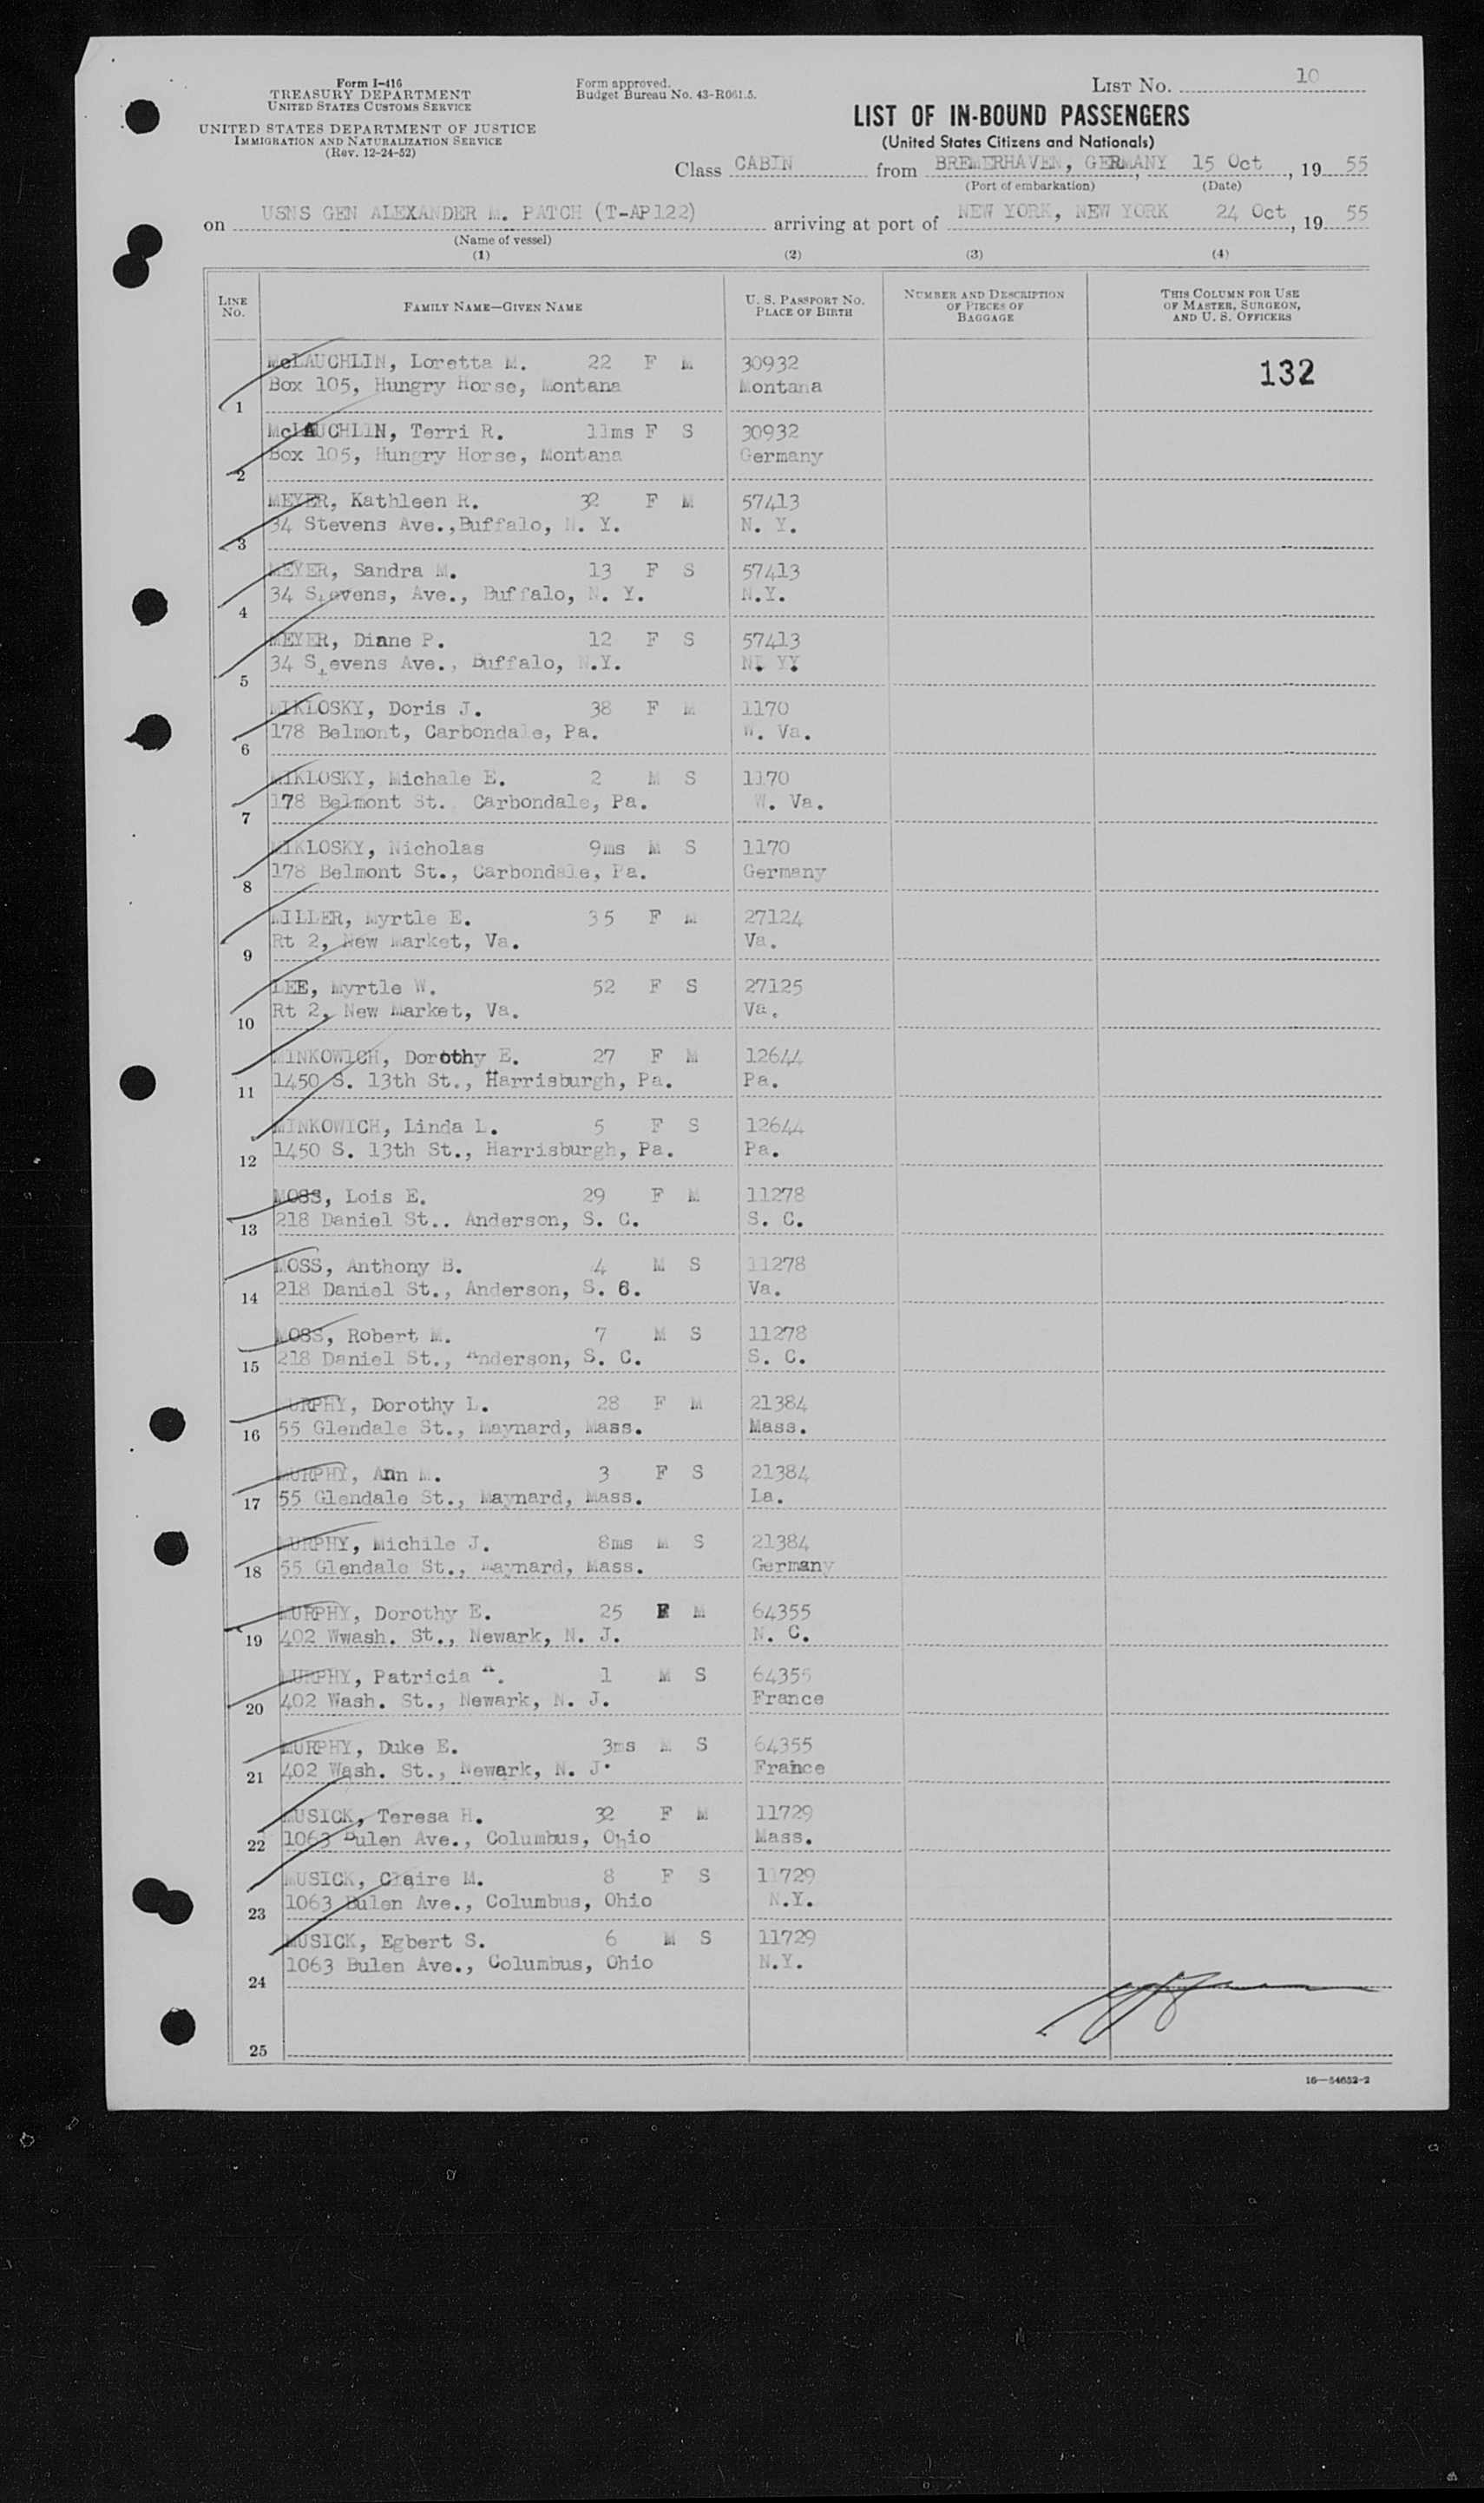 Form I-416
TREASURY DEPARTMENT
UNITED STATES CUSTOMS SERVICE
UNITED STATES DEPARTMENT OF JUSTICE
IMMIGRATION AND NATURALIZATION SERVICE
(Rev. 12-24-52)
Form approved.
Budget Bureau No. 43-R061.5.
LIST NO. 10
LIST OF IN-BOUND PASSENGERS
(United States Citizens and Nationals)
Class CABIN from BREMERHAVEN, GERMANY, 15 Oct, 19 55
(Port of embarkation) (Date)
on USNS GEN ALEXANDER M. PATCH (T-AP122) arriving at port of NEW YORK, NEW YORK 24 Oct, 19 55
(Name of vessel)
(1) (2) (3) (4)
LINE NO. FAMILY NAME—GIVEN NAME U. S. PASSPORT NO. PLACE OF BIRTH NUMBER AND DESCRIPTION OF PIECES OF BAGGAGE THIS COLUMN FOR USE OF MASTER, SURGEON, AND U. S. OFFICERS
McLAUCHLIN, Loretta M. 22 F M 30932 132
1 Box 105, Hungry Horse, Montana Montana
McLAUCHLIN, Terri R. 11ms F S 30932
2 Box 105, Hungry Horse, Montana Germany
MEYER, Kathleen R. 32 F M 57413
3 34 Stevens Ave.,Buffalo, N. Y. N. Y.
MEYER, Sandra M. 13 F S 57413
4 34 Stevens, Ave., Buffalo, N. Y. N.Y.
MEYER, Diane P. 12 F S 57413
5 34 Stevens Ave., Buffalo, N.Y. N. Y.
MIKLOSKY, Doris J. 38 F M 1170
6 178 Belmont, Carbondale, Pa. W. Va.
MIKLOSKY, Michale E. 2 M S 1170
7 178 Belmont St. Carbondale, Pa. W. Va.
MIKLOSKY, Nicholas 9ms M S 1170
8 178 Belmont St., Carbondale, Pa. Germany
MILLER, Myrtle E. 35 F M 27124
9 Rt 2, New Market, Va. Va.
LEE, Myrtle W. 52 F S 27125
10 Rt 2, New Market, Va. Va.
MINKOWICH, Dorothy E. 27 F M 12644
11 1450 S. 13th St., Harrisburgh, Pa. Pa.
MINKOWICH, Linda L. 5 F S 12644
12 1450 S. 13th St., Harrisburgh, Pa. Pa.
MOSS, Lois E. 29 F M 11278
13 218 Daniel St.. Anderson, S. C. S. C.
MOSS, Anthony B. 4 M S 11278
14 218 Daniel St., Anderson, S. C. Va.
MOSS, Robert M. 7 M S 11278
15 218 Daniel St., Anderson, S. C. S. C.
MURPHY, Dorothy L. 28 F M 21384
16 55 Glendale St., Maynard, Mass. Mass.
MURPHY, Ann M. 3 F S 21384
17 55 Glendale St., Maynard, Mass. La.
MURPHY, Michile J. 8ms M S 21384
18 55 Glendale St., Maynard, Mass. Germany
MURPHY, Dorothy E. 25 F M 64355
19 402 Wwash. St., Newark, N. J. N. C.
MURPHY, Patricia A. 1 M S 64355
20 402 Wash. St., Newark, N. J. France
MURPHY, Duke E. 3ms M S 64355
21 402 Wash. St., Newark, N. J. France
MUSICK, Teresa H. 32 F M 11729
22 1063 Bulen Ave., Columbus, Ohio Mass.
MUSICK, Claire M. 8 F S 11729
23 1063 Bulen Ave., Columbus, Ohio N.Y.
MUSICK, Egbert S. 6 M S 11729
24 1063 Bulen Ave., Columbus, Ohio N.Y.
25
16—54652-2